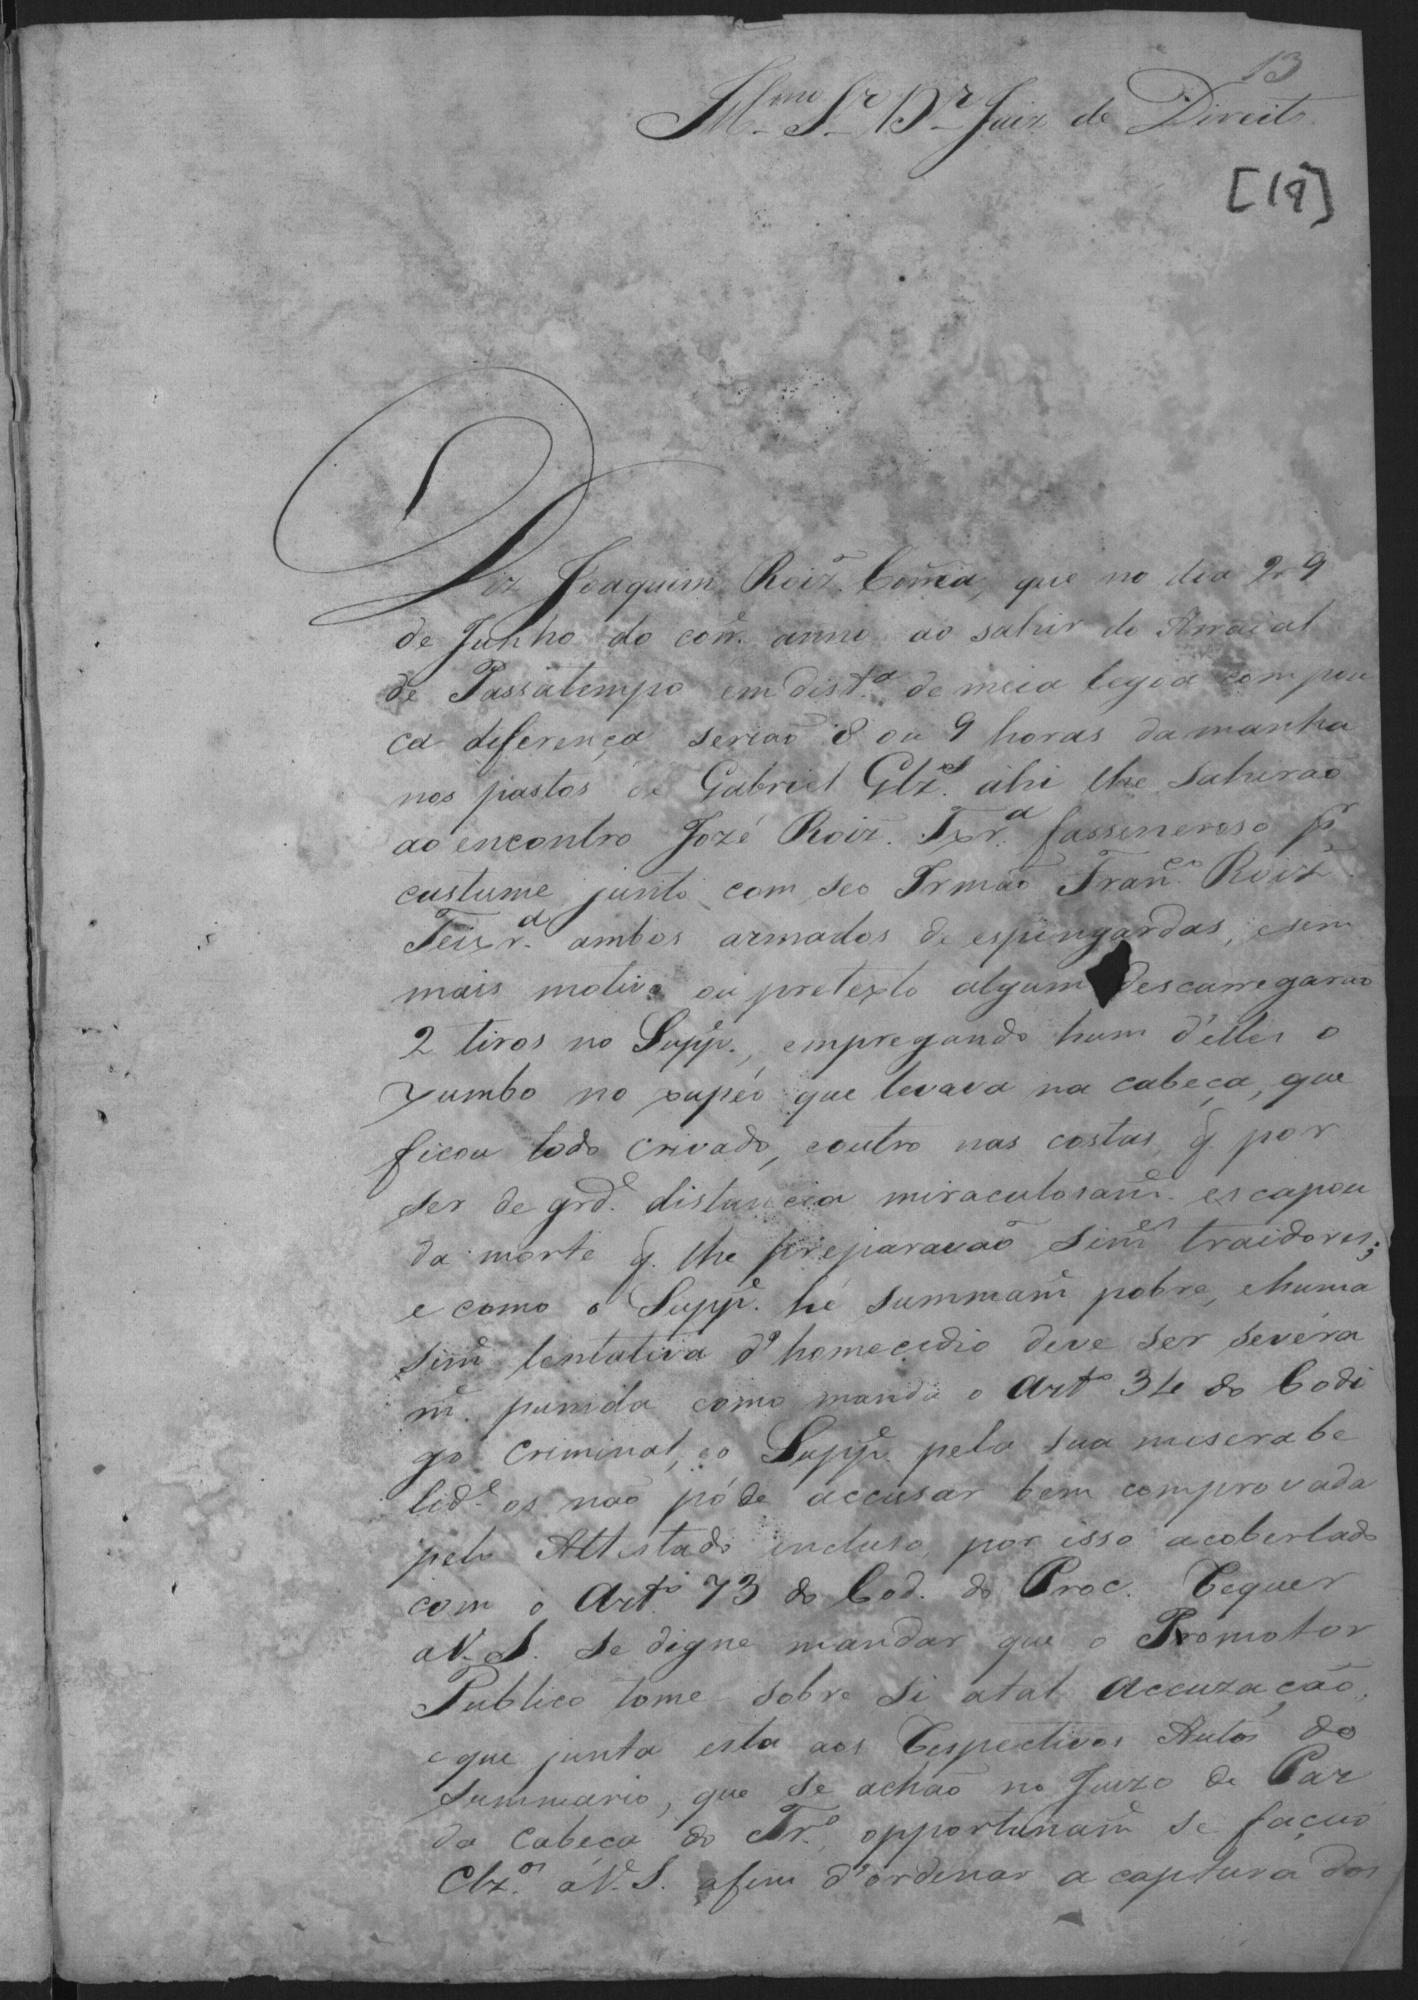 13
Illmo Sr Dr Juiz de Direito
[19]
Diz Joaquim Roiz. Correia, que no dia 29
de Junho do corre. anno ao sahir do Arraial
de Passatempo em dista. de meia legoa com pou
ca diferença serião 8 ou 9 horas da manha
nos pastos de Gabriel Glz. ahi lhe sahirão
ao encontro Jozé Roiz. Txra. fassineroso pr
custume junto com seo Irmão Franco. Roiz
Teixra. ambos armados de espingardas, esem
mais motivo ou pretexto algum descarregarão
2 tiros no Suppe., empregando hum d'elles o
xumbo no xapeo que levava na cabeça, que
ficou todo crivado, eoutro nas costas, q. por
ser de grde. distancia miraculosame. escapou
da morte q. lhe preparavão simes traidores;
e como o Suppe. hé summame pobre, ehuma
sime tentativa d'homecidio deve ser severa
me. punida como manda o Arto 34 do Codi
go Criminal, eo Suppe. pela sua miserabe
lide. os não póde accusar bem comprovada
pelo Attestado incluso, por isso acobertado
com o Arto. 73 do Cod. do Proc. Requer
aV. S. se digne mandar que o Promotor
Publico tome sobre si atal Accuzação,
eque junta esta aos Respectivos Autos do
Summario, que se achão no Juizo de Paz
da Cabeça do Tro., opportuname se fação
Clzos. áV. S. afim d'ordenar a captura dos